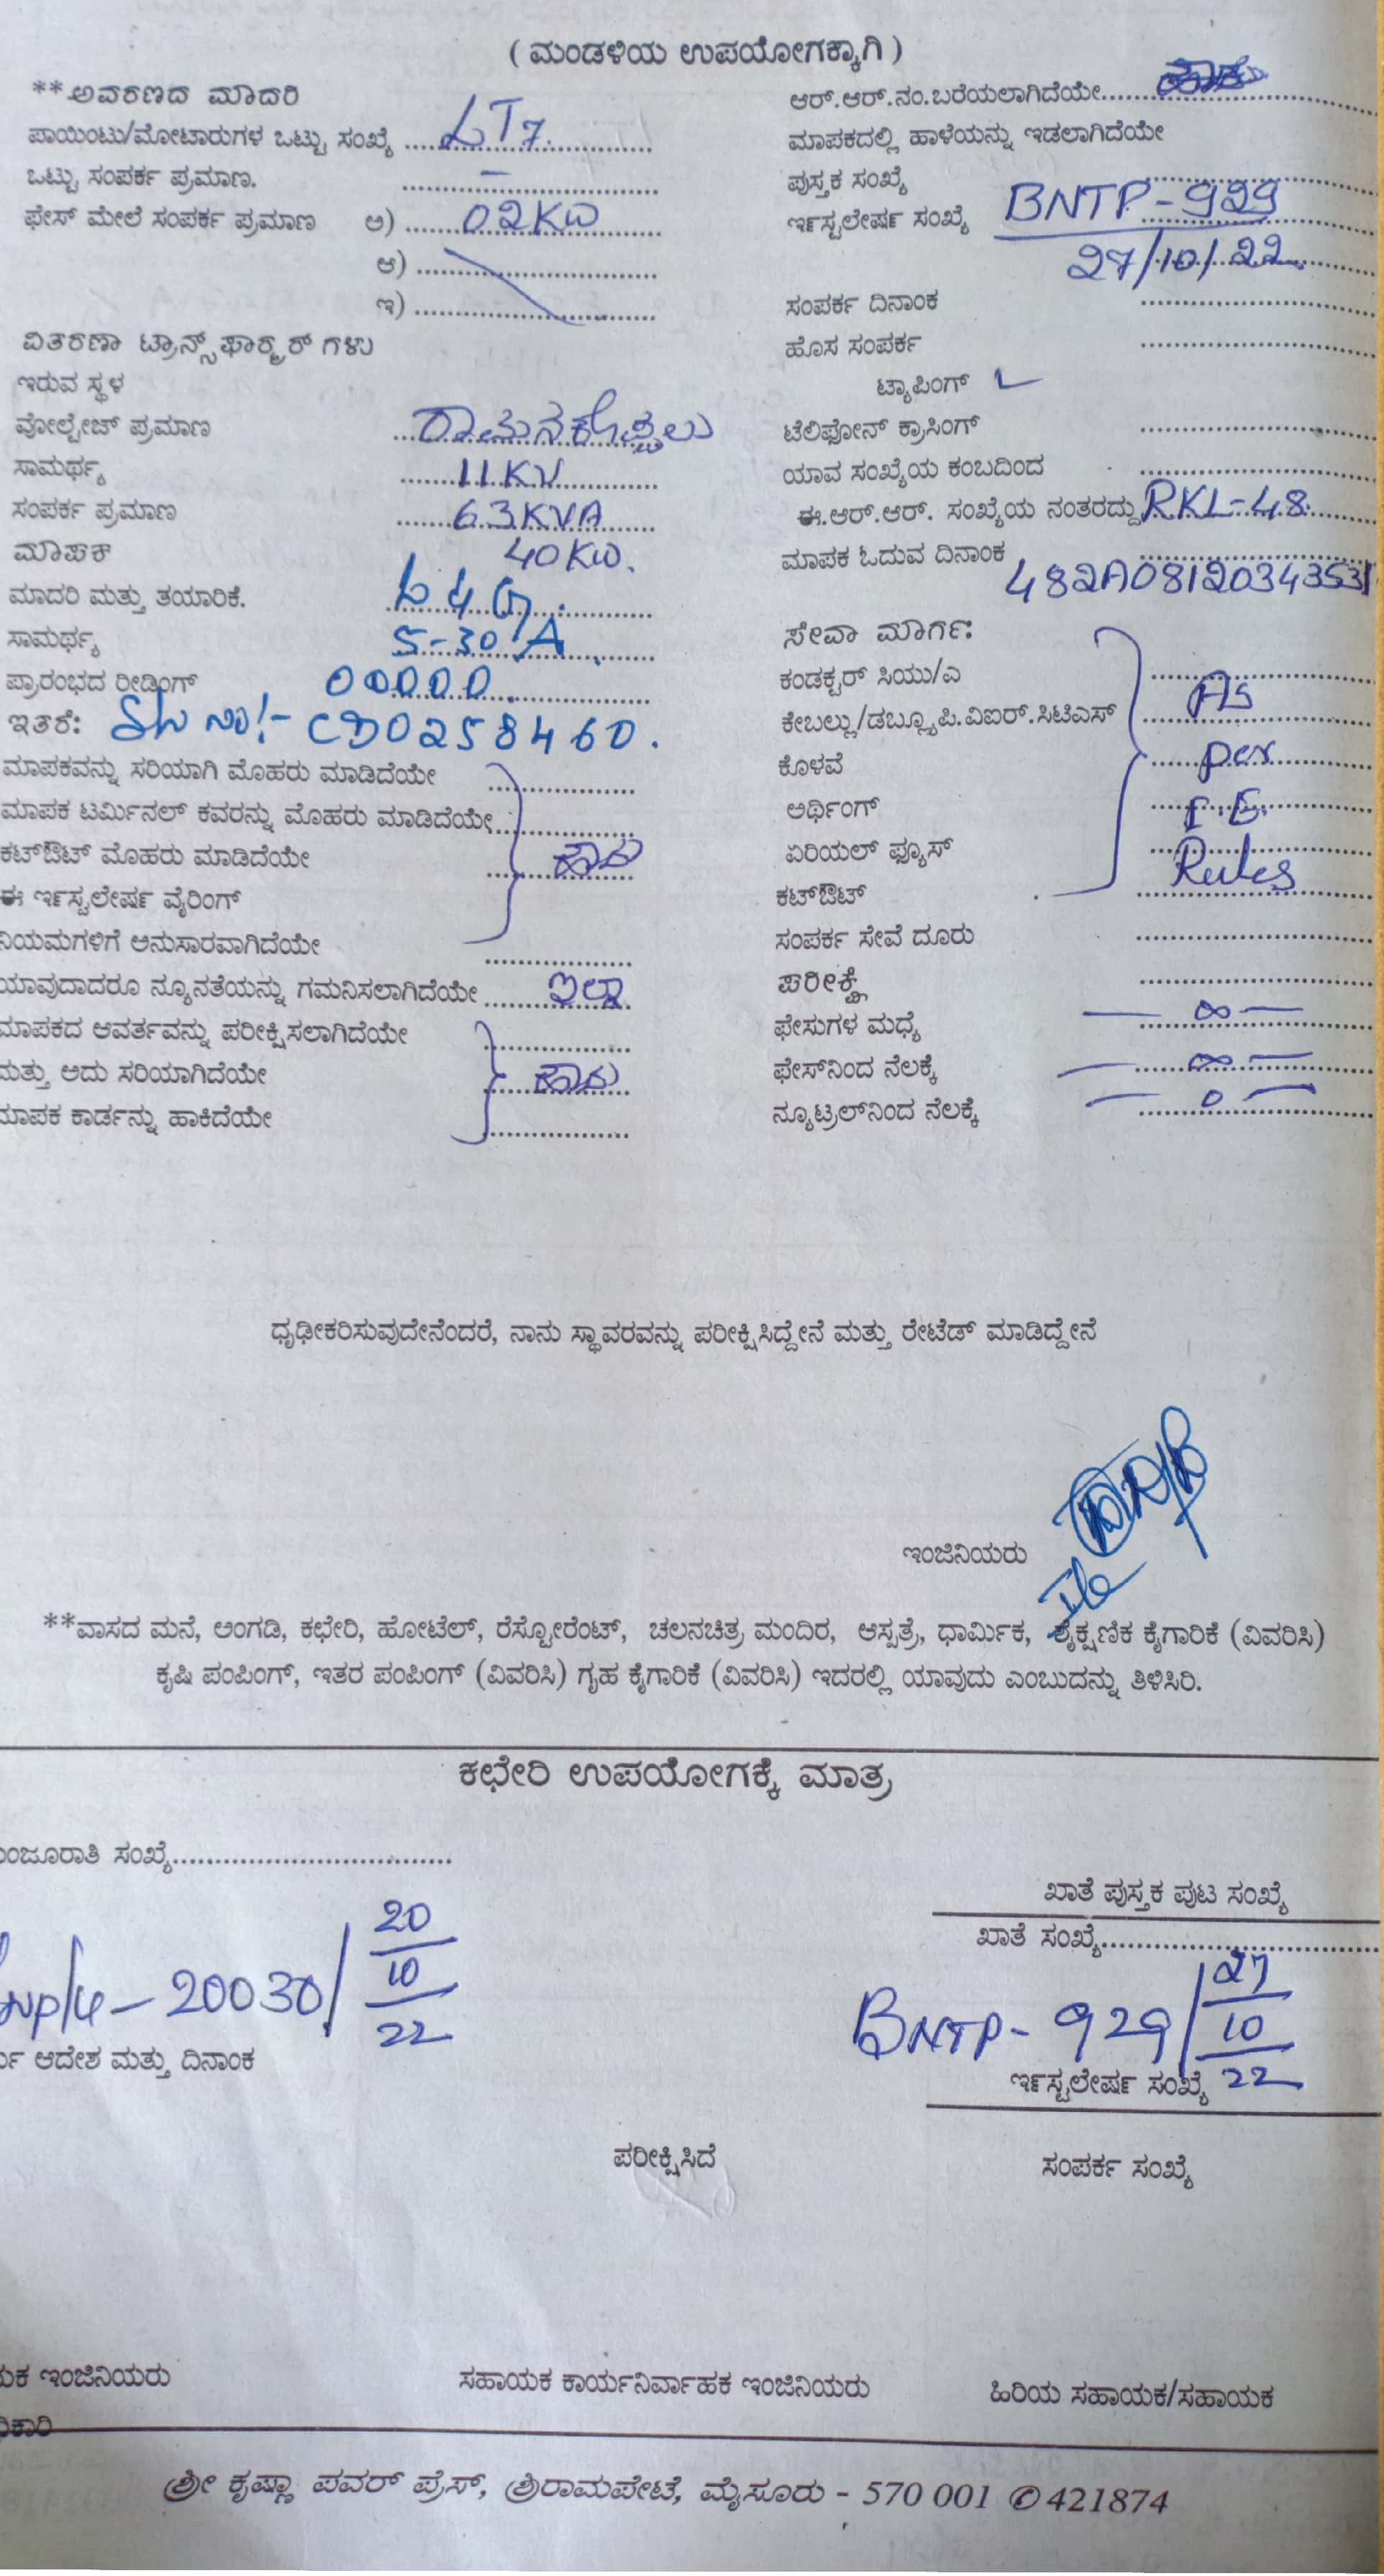 ( ಮಂಡಳಿಯ ಉಪಯೋಗಕ್ಕಾಗಿ )
**ಅವರಣದ ಮಾದರಿ
ಪಾಯಿಂಟು/ಮೋಟಾರುಗಳ ಒಟ್ಟು ಸಂಖ್ಯೆ ....LT7.
ಒಟ್ಟು ಸಂಪರ್ಕ ಪ್ರಮಾಣ. –
ಫೇಸ್ ಮೇಲೆ ಸಂಪರ್ಕ ಪ್ರಮಾಣ ಅ) 02KW
ಆ)
ಇ)
ವಿತರಣಾ ಟ್ರಾನ್ಸ್‌ಫಾರ್‍ಮರ್ ಗಳು
ಇರುವ ಸ್ಥಳ
ವೋಲ್ಟೇಜ್ ಪ್ರಮಾಣ ರಾಮನಕೊಪ್ಪಲು
ಸಾಮರ್ಥ್ಯ 11KV
ಸಂಪರ್ಕ ಪ್ರಮಾಣ 63KVA
ಮಾಪಕ 40KW.
ಮಾದರಿ ಮತ್ತು ತಯಾರಿಕೆ. L&G.
ಸಾಮರ್ಥ್ಯ 5-30A
ಪ್ರಾರಂಭದ ರೀಡಿಂಗ್ 00000.
ಇತರೆ: CD0258460.
ಮಾಪಕವನ್ನು ಸರಿಯಾಗಿ ಮೊಹರು ಮಾಡಿದೆಯೇ
ಮಾಪಕ ಟರ್ಮಿನಲ್ ಕವರನ್ನು ಮೊಹರು ಮಾಡಿದೆಯೇ
ಕಟ್‌ಔಟ್ ಮೊಹರು ಮಾಡಿದೆಯೇ ಹೌದು
ಈ ಇನ್‌ಸ್ಟಲೇಷನ್ ವೈರಿಂಗ್
ನಿಯಮಗಳಿಗೆ ಅನುಸಾರವಾಗಿದೆಯೇ
ಯಾವುದಾದರೂ ನ್ಯೂನತೆಯನ್ನು ಗಮನಿಸಲಾಗಿದೆಯೇ ಇಲ್ಲಾ
ಮಾಪಕದ ಆವರ್ತವನ್ನು ಪರೀಕ್ಷಿಸಲಾಗಿದೆಯೇ
ಮತ್ತು ಅದು ಸರಿಯಾಗಿದೆಯೇ ಹೌದು
ಮಾಪಕ ಕಾರ್ಡನ್ನು ಹಾಕಿದೆಯೇ
ಆರ್.ಆರ್.ನಂ.ಬರೆಯಲಾಗಿದೆಯೇ ಹೌದು
ಮಾಪಕದಲ್ಲಿ ಹಾಳೆಯನ್ನು ಇಡಲಾಗಿದೆಯೇ
ಪುಸ್ತಕ ಸಂಖ್ಯೆ
ಇನ್‌ಸ್ಟಲೇಷನ್ ಸಂಖ್ಯೆ BNTP-929
27/10/22
ಸಂಪರ್ಕ ದಿನಾಂಕ
ಹೊಸ ಸಂಪರ್ಕ
ಟ್ಯಾಪಿಂಗ್ ✓
ಟೆಲಿಫೋನ್ ಕ್ರಾಸಿಂಗ್
ಯಾವ ಸಂಖ್ಯೆಯ ಕಂಬದಿಂದ
ಈ.ಆರ್.ಆರ್. ಸಂಖ್ಯೆಯ ನಂತರದ್ದು RKL-48
ಮಾಪಕ ಓದುವ ದಿನಾಂಕ
482A08120343531
ಸೇವಾ ಮಾರ್ಗ:
ಕಂಡಕ್ಟರ್ ಸಿಯು/ಎ
ಕೇಬಲ್ಲು/ಡಬ್ಲ್ಯೂಪಿ.ವಿಐರ್.ಸಿಟಿಎಸ್ As
ಕೊಳವೆ per
ಅರ್ಥಿಂಗ್ I.E.
ಏರಿಯಲ್ ಫ್ಯೂಸ್ Rules
ಕಟ್‌ಔಟ್
ಸಂಪರ್ಕ ಸೇವೆ ದೂರು
ಪರೀಕ್ಷೆ
ಫೇಸುಗಳ ಮಧ್ಯೆ — ∞ —
ಫೇಸ್‌ನಿಂದ ನೆಲಕ್ಕೆ — ∞ —
ನ್ಯೂಟ್ರಲ್‌ನಿಂದ ನೆಲಕ್ಕೆ — 0 —
ಧೃಢೀಕರಿಸುವುದೇನೆಂದರೆ, ನಾನು ಸ್ಥಾವರವನ್ನು ಪರೀಕ್ಷಿಸಿದ್ದೇನೆ ಮತ್ತು ರೇಟೆಡ್ ಮಾಡಿದ್ದೇನೆ
ಇಂಜಿನಿಯರು
**ವಾಸದ ಮನೆ, ಅಂಗಡಿ, ಕಛೇರಿ, ಹೋಟೆಲ್, ರೆಸ್ಟೋರೆಂಟ್, ಚಲನಚಿತ್ರ ಮಂದಿರ, ಆಸ್ಪತ್ರೆ, ಧಾರ್ಮಿಕ, ಶೈಕ್ಷಣಿಕ ಕೈಗಾರಿಕೆ (ವಿವರಿಸಿ)
ಕೃಷಿ ಪಂಪಿಂಗ್, ಇತರ ಪಂಪಿಂಗ್ (ವಿವರಿಸಿ) ಗೃಹ ಕೈಗಾರಿಕೆ (ವಿವರಿಸಿ) ಇದರಲ್ಲಿ ಯಾವುದು ಎಂಬುದನ್ನು ತಿಳಿಸಿರಿ.
ಕಛೇರಿ ಉಪಯೋಗಕ್ಕೆ ಮಾತ್ರ
ಂಜೂರಾತಿ ಸಂಖ್ಯೆ
20030/ 20/10/22
ಆದೇಶ ಮತ್ತು ದಿನಾಂಕ
ಖಾತೆ ಪುಸ್ತಕ ಪುಟ ಸಂಖ್ಯೆ
ಖಾತೆ ಸಂಖ್ಯೆ
BNTP- 929/ 27/10/22
ಇನ್‌ಸ್ಟಲೇಷನ್ ಸಂಖ್ಯೆ
ಪರೀಕ್ಷಿಸಿದೆ
ಸಂಪರ್ಕ ಸಂಖ್ಯೆ
ಯಕ ಇಂಜಿನಿಯರು
ಸಹಾಯಕ ಕಾರ್ಯನಿರ್ವಾಹಕ ಇಂಜಿನಿಯರು
ಹಿರಿಯ ಸಹಾಯಕ/ಸಹಾಯಕ
ಿಕಾರಿ
ಶ್ರೀ ಕೃಷ್ಣಾ ಪವರ್ ಪ್ರೆಸ್, ಶ್ರೀರಾಮಪೇಟೆ, ಮೈಸೂರು - 570 001 ✆ 421874